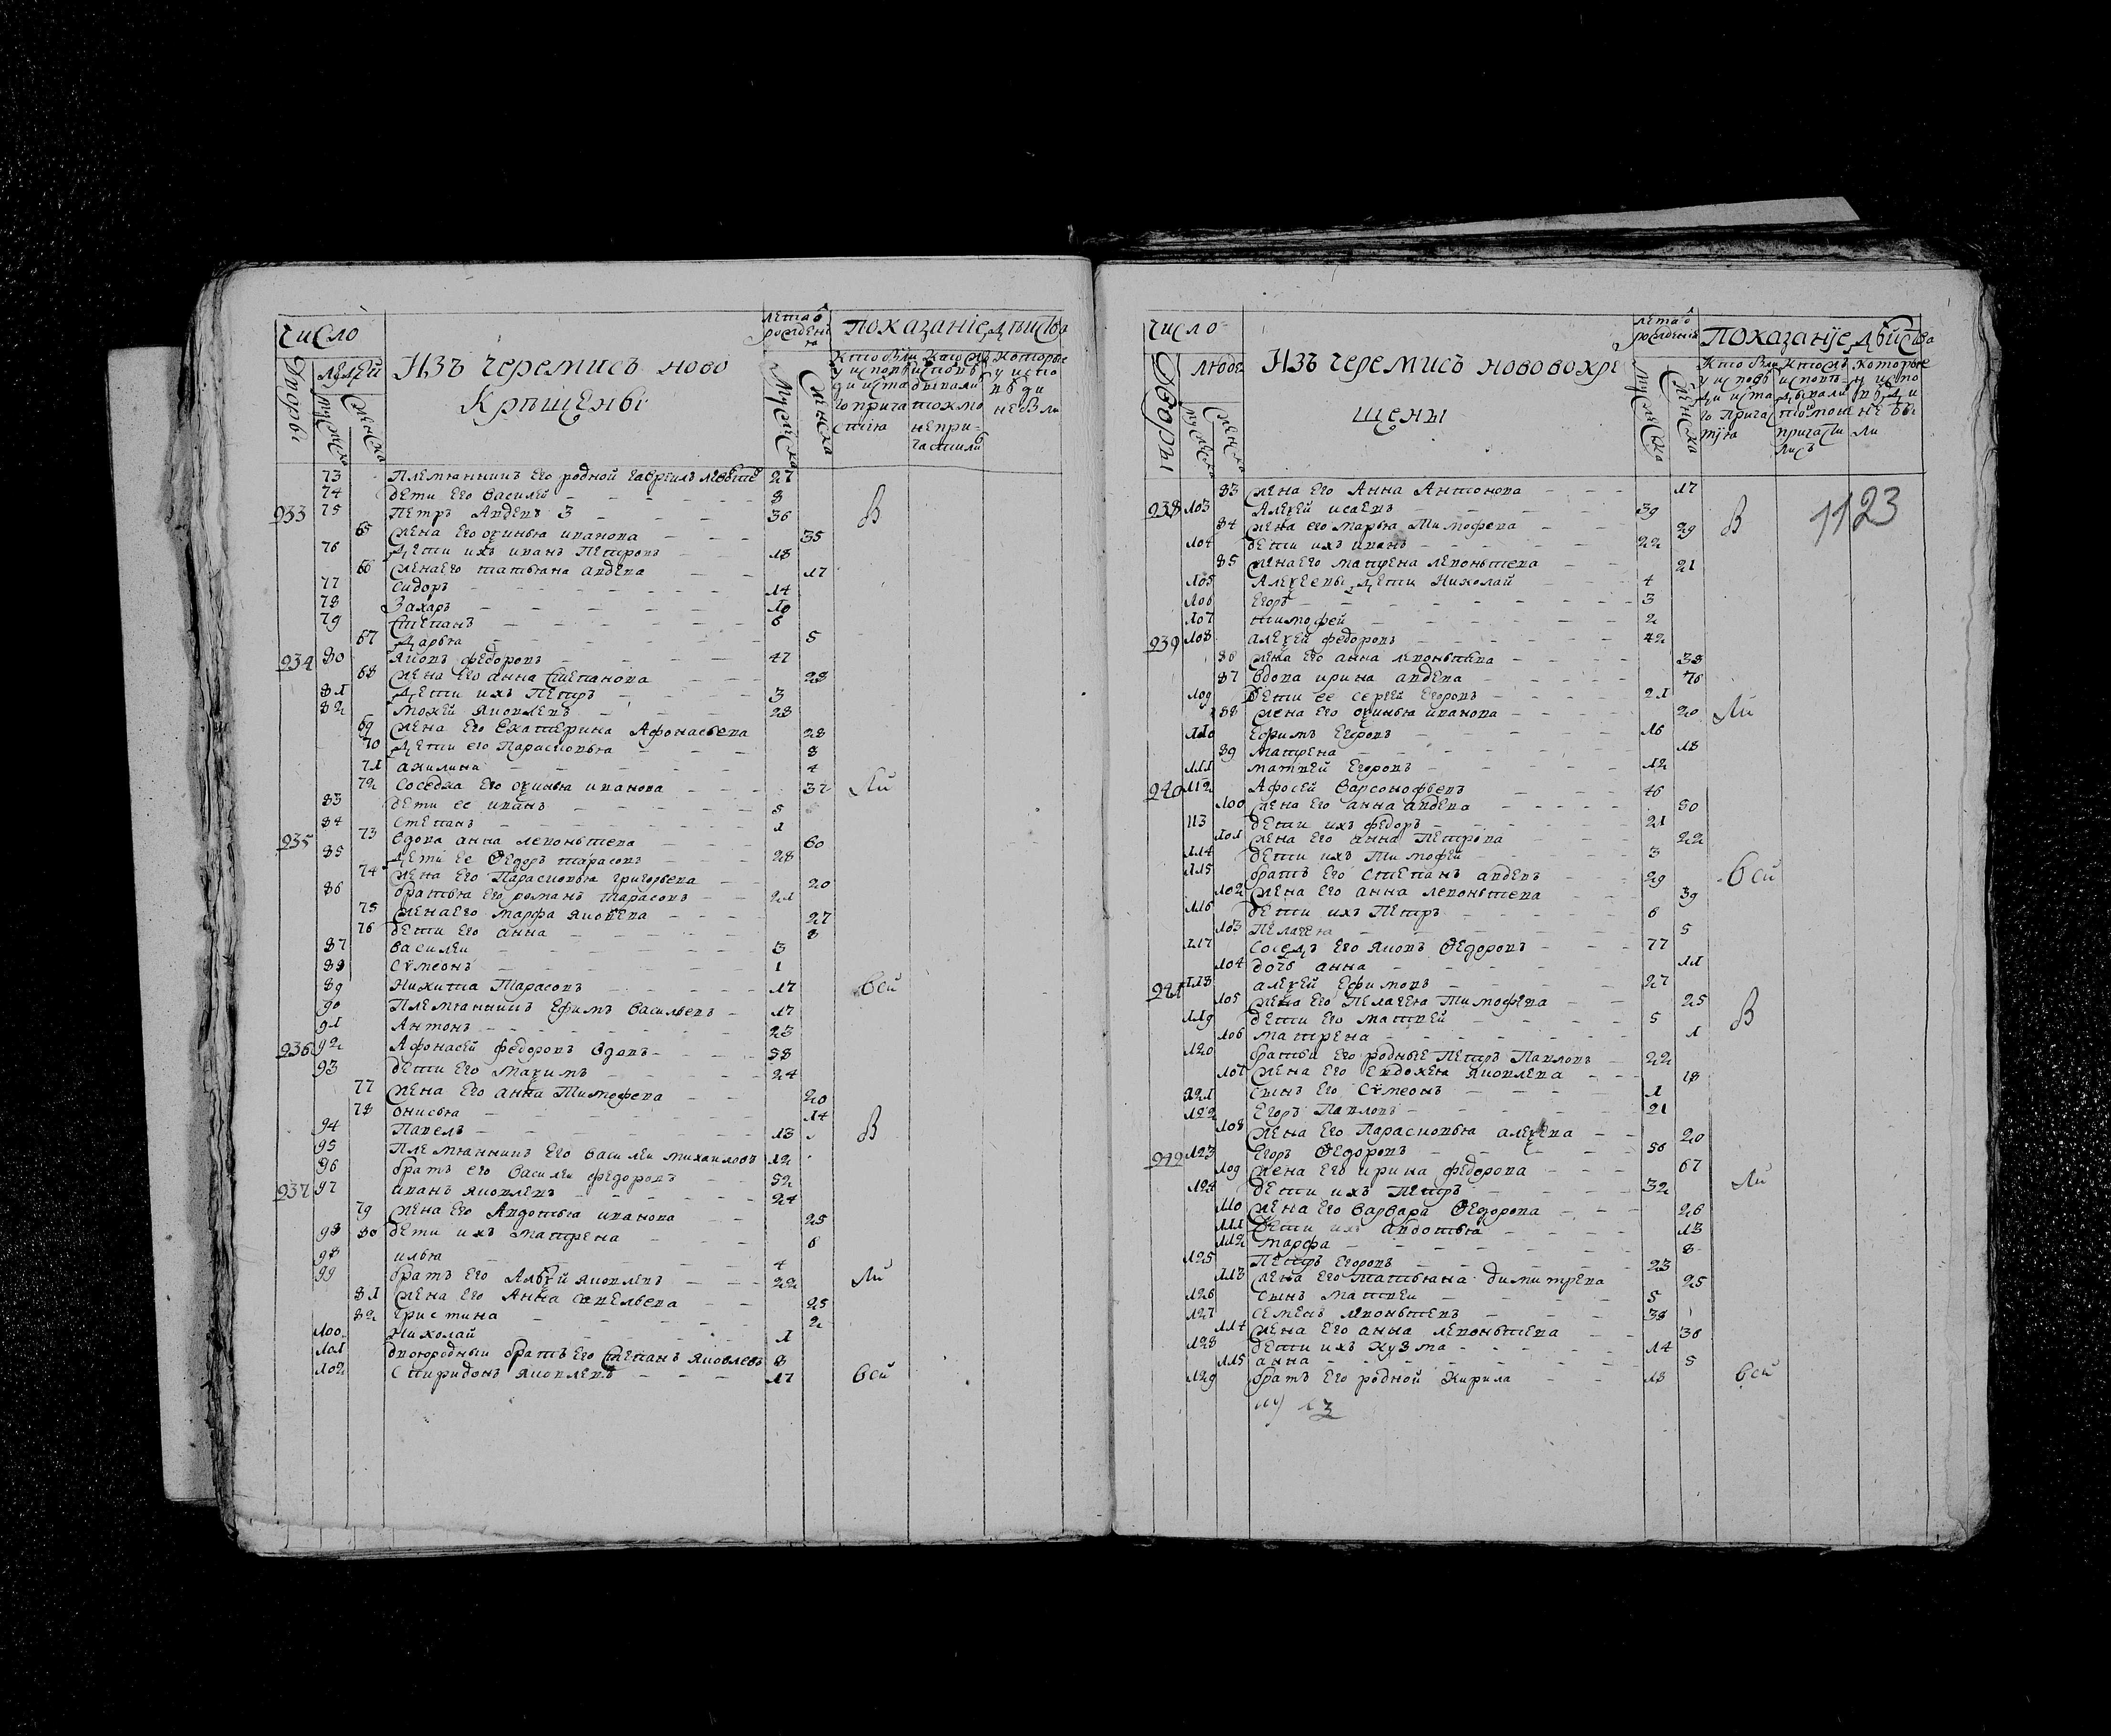 число
Дворы
людей
мужска
женска
Изъ черемисъ ново
крещены
лета от рождения
мужска
женска
показаніе действа
73 Племянникъ его родной Гавреилъ 27
74 дети его василей 8
933 75 Петръ Авдеевъ 3 36 В
65 жена его оксинья иванова 35
76 дети ихъ иванъ Петровъ 18
66 жена его татьяна авдеева 17
77 сидоръ 14
78 Захаръ 10
79 степанъ 6
67 дарья 5
934 80 яковъ федоровъ 47
68 жена его анна степанова 28
81 дети ихъ Петръ 3
82 мокей яковлевъ 28
69 жена его Екатерина Афонасьева 28
70 дети его Парасковья 8
71 акилина 4
72 соседка его оксинья иванова 37 Ли
83 дети ее иванъ 5
84 степанъ 1
935 73 вдова анна леонтьева 60
85 дети ее Ѳедоръ тарасовъ 28
74 жена его Парасковья григорьева 20
86 братья его романъ тарасовъ 21
75 жена его марфа яковлева 27
76 дети его анна 8
87 василеи 3
88 сѵмеонъ 1
89 никита тарасовъ 17 всй
90 Племянникъ Ефимъ васильевъ 17
91 Антонъ 23
936 92 Афонасей федоровъ вдовъ 58
93 дети его максимъ 24
77 жена его анна тимофеева 20
78 онисья 14
94 Павелъ 13 В
95 Племянникъ его василеи михаиловъ 12
96 братъ его василеи федоровъ 52
937 97 иванъ яковлевъ 24
79 жена его Авдотья иванова 25
98 80 дети ихъ матрена 6
98 илья 4
99 братъ его Алексей яковлевъ 22 Ли
81 жена его Анна савельева 25
82 христина 2
100 николай 1
101 двоюродныи братъ его степанъ яковлевъ 8
102 спиридонъ яковлевъ 17 всй
число
Дворы
людей
мужска
женска
Изъ черемисъ нововокре
щены
лета от рождения
мужска
женска
показанѵе действа
1123
83 жена его Анна Антонова 17
238 103 Алексей исаевъ 39 В
84 жена его марья тимофеева 39
104 дети ихъ иванъ 22
85 жена его матрена леонтьева 21
105 Алексеевы дети Николай 4
106 Егоръ 3
107 тимофей 2
239 108 алексей федоровъ 42
86 жена его анна леонтьева 38
87 вдова ирина авдеева 76
109 дети ее сергей Егоровъ 21
88 жена его оксинья иванова 20 Ли
110 Ефимъ Егоровъ 16
89 матрена 18
111 матвей Егоровъ 12
240 112 Афосей Варсонофьевъ 46
100 жена его анна авдеева 50
113 дети ихъ федоръ 21
101 жена его анна Петрова 22
114 дети ихъ Тимофей 3
115 братъ его степанъ авдеевъ 29 всй
102 жена его анна леонтьева 39
116 дети ихъ Петръ 6
103 Пелагея 5
117 соседъ его яковъ Ѳедоровъ 77
104 дочь анна 11
241 118 алексей Ефимовъ 27
105 жена его Пелагея Тимофеева 25
119 дети его матвей 5 В
106 матрена 1
120 братья его родные Петръ Павловъ 22
107 жена его Евдокея яковлева 18
121 сынъ его сѵмеонъ 1
122 Егоръ Павловъ 21
108 жена его Парасковья алексеева 20
242 123 Егоръ Ѳедоровъ 56
109 жена его ирина федорова 67
124 дети ихъ Петръ 32 Ли
110 жена его варвара Ѳедорова 26
111 дети ихъ авдотья 13
112 марфа 8
125 Петръ Егоровъ 23
113 жена его татьяна димитрева 25
126 сынъ матвеи 5
127 семенъ леонтьевъ 38
114 жена его анна леонтьева 36
128 дети ихъ кузма 14
115 анна 5
129 братъ его родной Кирила 18 всй